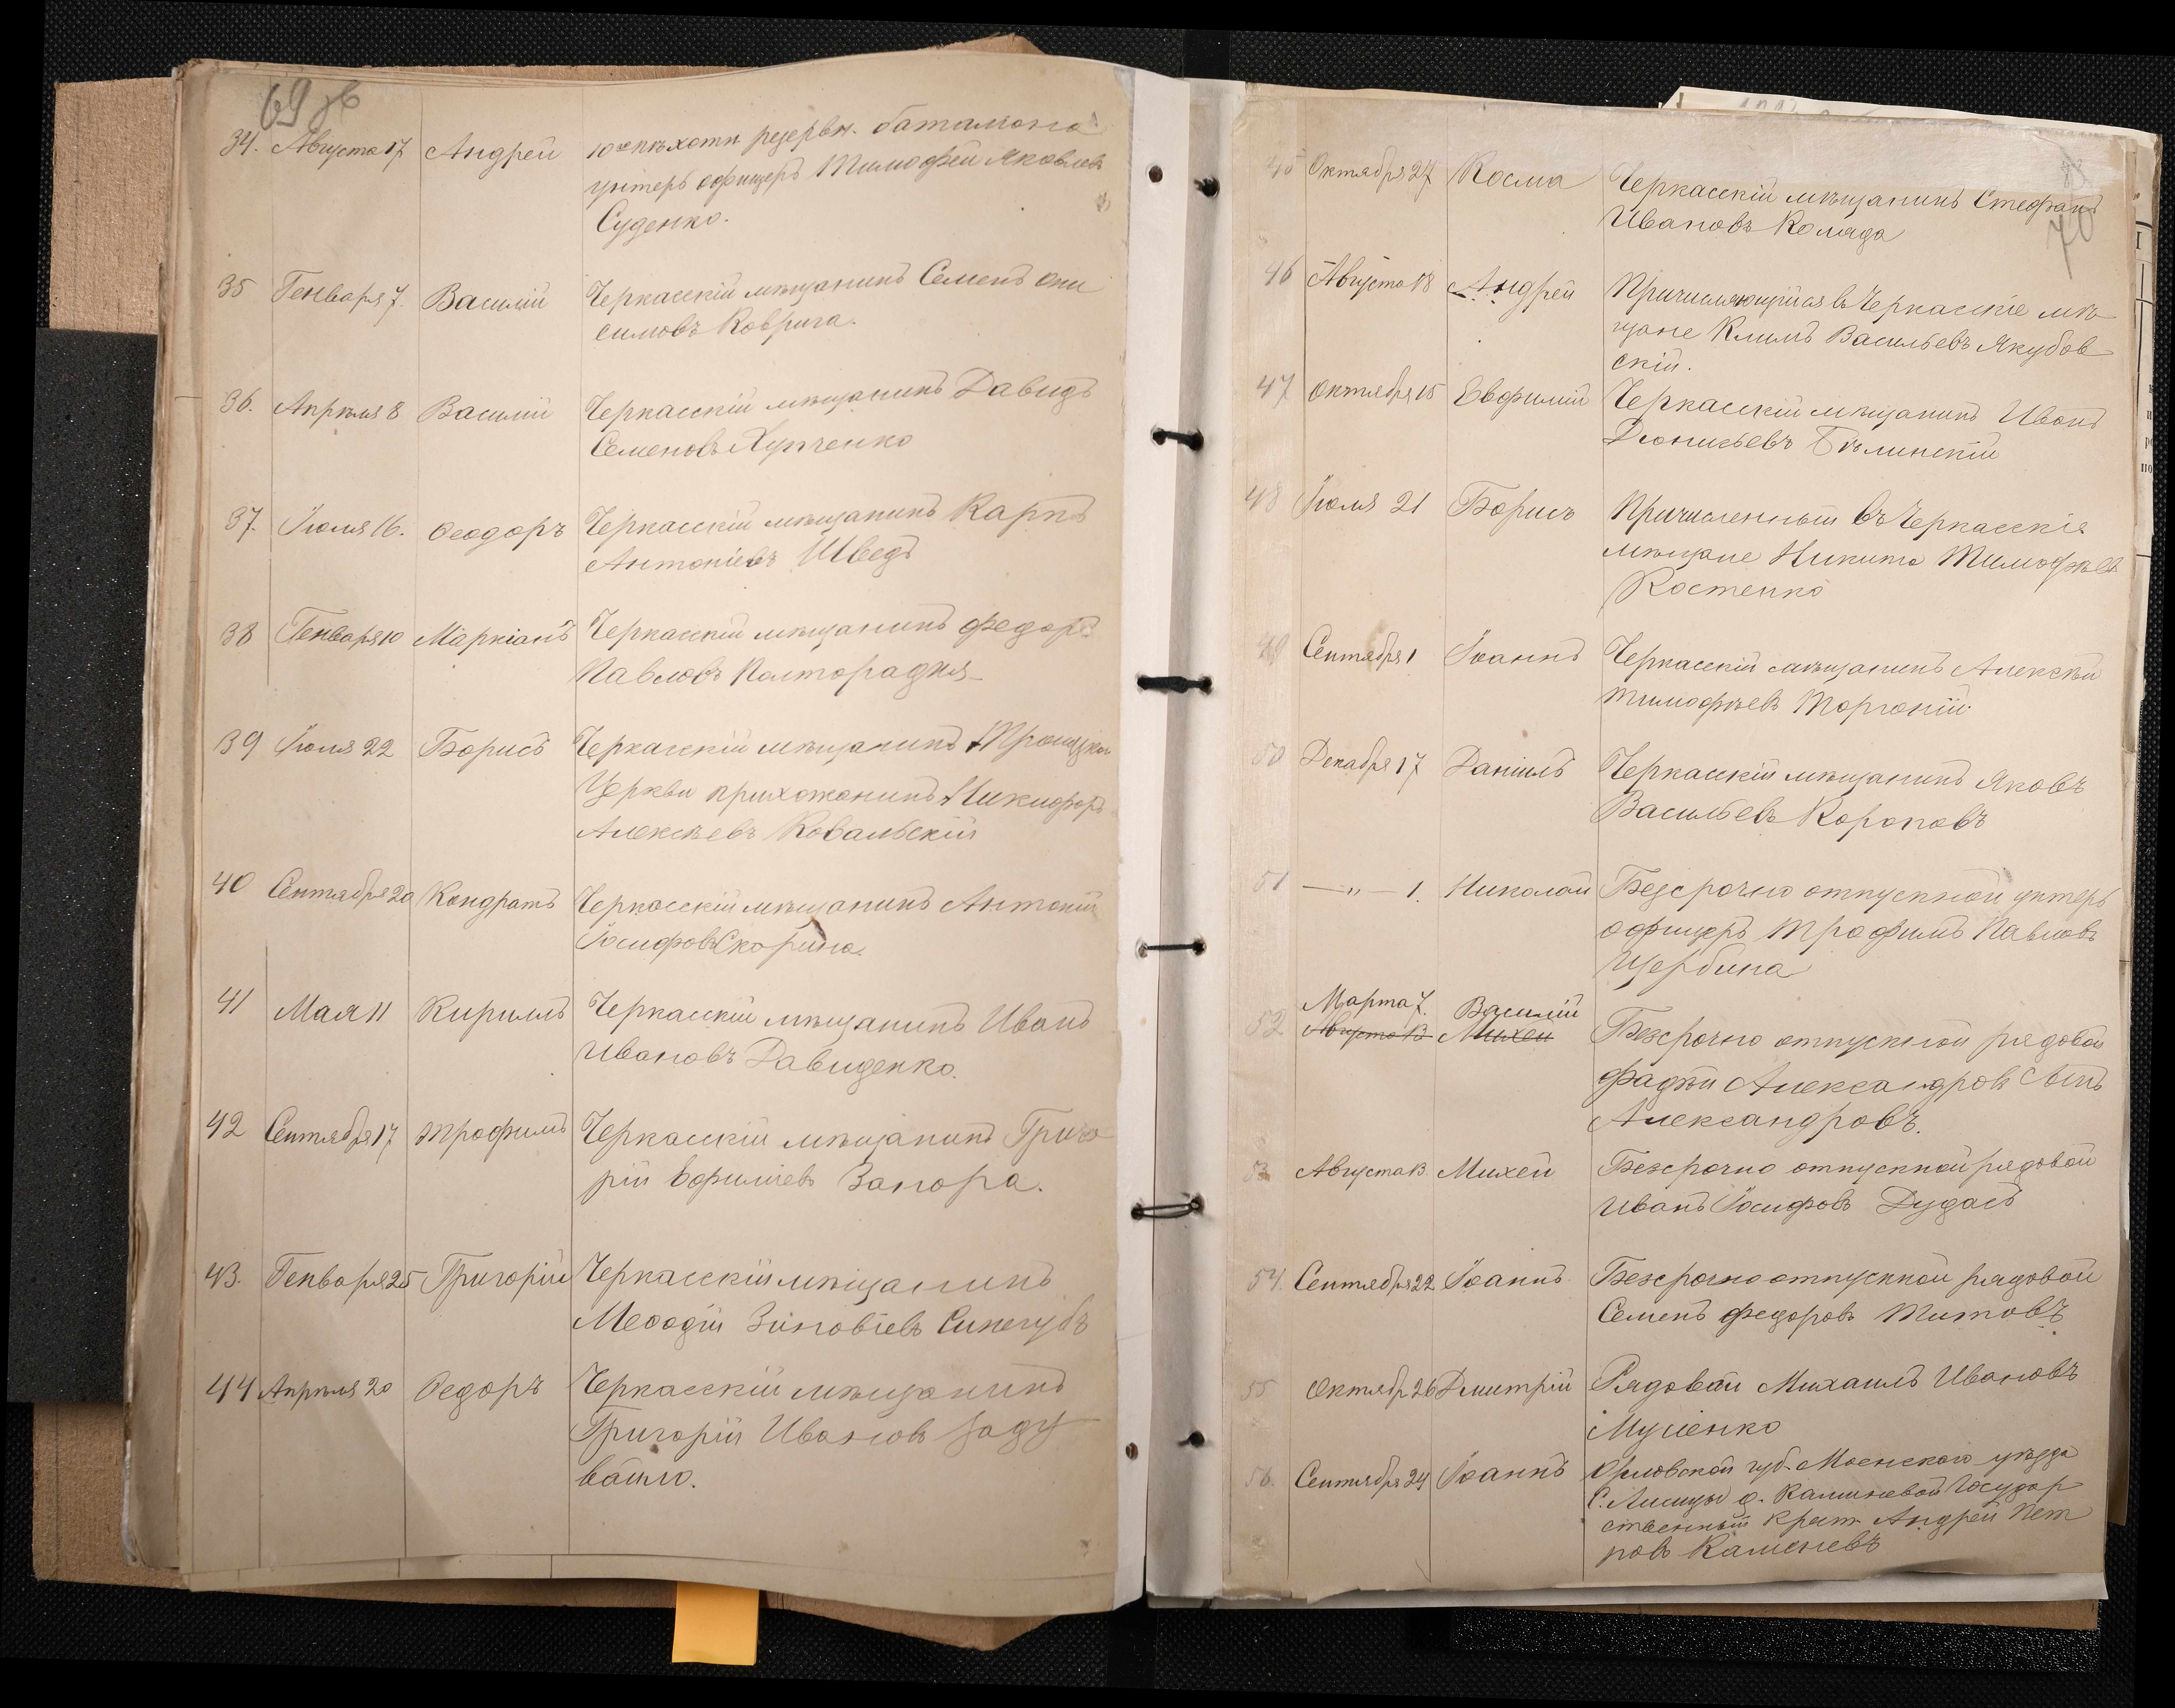 69 зв
34. Августа 17 Андрей 10го пѣхотн резервн. баталіона
унтеръ офицеръ Тимофей Яковлевъ
Суденко.
35 Генваря 7. Василій Черкасскій мѣщанинъ Семенъ Они
симовъ Коврига.
36. Апрѣля 8 Василій Черкасскій мѣщанинъ Давидъ
Семеновъ Хупченко
37. Іюля 16. Ѳеодоръ Черкасскій мѣщанинъ Карпъ
Антоніевъ Шведъ
38 Генваря 10 Маркіанъ Черкасскій мѣщанинъ Федоръ
Павловъ Полторадня
39 Іюля 22 Борисъ Черкасскій мѣщанинъ Троицкой
Церкви прихожанинъ Никифоръ
Алексѣевъ Ковальскій
40 Сентября 20 Кондратъ Черкасскій мѣщанинъ Антоній
Іосифовъ Скорина.
41 Мая 11 Кириллъ Черкасскій мѣщанинъ Иванъ
Ивановъ Давиденко.
42 Сентября 17 Трофимъ Черкасскій мѣщанинъ Григо
рій Ефиміевъ Запора.
43. Генваря 25 Григорій Черкасскій мѣщанинъ
Меѳодій Зиновіевъ Синегубъ
44 Апрѣля 20 Ѳедоръ Черкасскій мѣщанинъ
Григорій Ивановъ Заду
вайло.
70
45 Октября 27 Косма Черкасскій мѣщанинъ Стефанъ
Ивановъ Коляда
46 Августа 18 Андрей Причисляющійся въ Черкасскіе мѣ
щане Климъ Васильевъ Якубов
скій.
47 Октября 15 Евфимій Черкасскій мѣщанинъ Иванъ
Діонисьевъ Бѣлинскій
48 Іюля 21 Борисъ Причисленный въ Черкасскіе
мѣщане Никита Тимофѣевъ
Костенко
49 Сентября 1 Іоаннъ Черкасскій мѣщанинъ Алексѣй
Тимофѣевъ
50 Декабря 17 Даніилъ Черкасскій мѣщанинъ Яковъ
Васильевъ Короповъ
51 — " — 1. Николай Безсрочно отпускной унтеръ
офицеръ Трофимъ Павловъ
Щербина
Марта 7. Василій
52 Августа 13 Михей Безсрочно отпускной рядовой
Фадѣй Александровъ сынъ
Александровъ.
53 Августа 13 Михей Безсрочно отпускной рядовой
Иванъ Іосифовъ Дудасъ
54. Сентября 22 Іоаннъ Безсрочно отпускной рядовой
Семенъ Федоровъ Титовъ
55 Октябр 26 Дмитрій Рядовой Михаилъ Ивановъ
Мусіенко
56. Сентября 24 Іоаннъ Орловской губ. уѣзда
С. Лисицы д. Калиневой Государ
ственный крест. Андрей Пет
ровъ Каменевъ